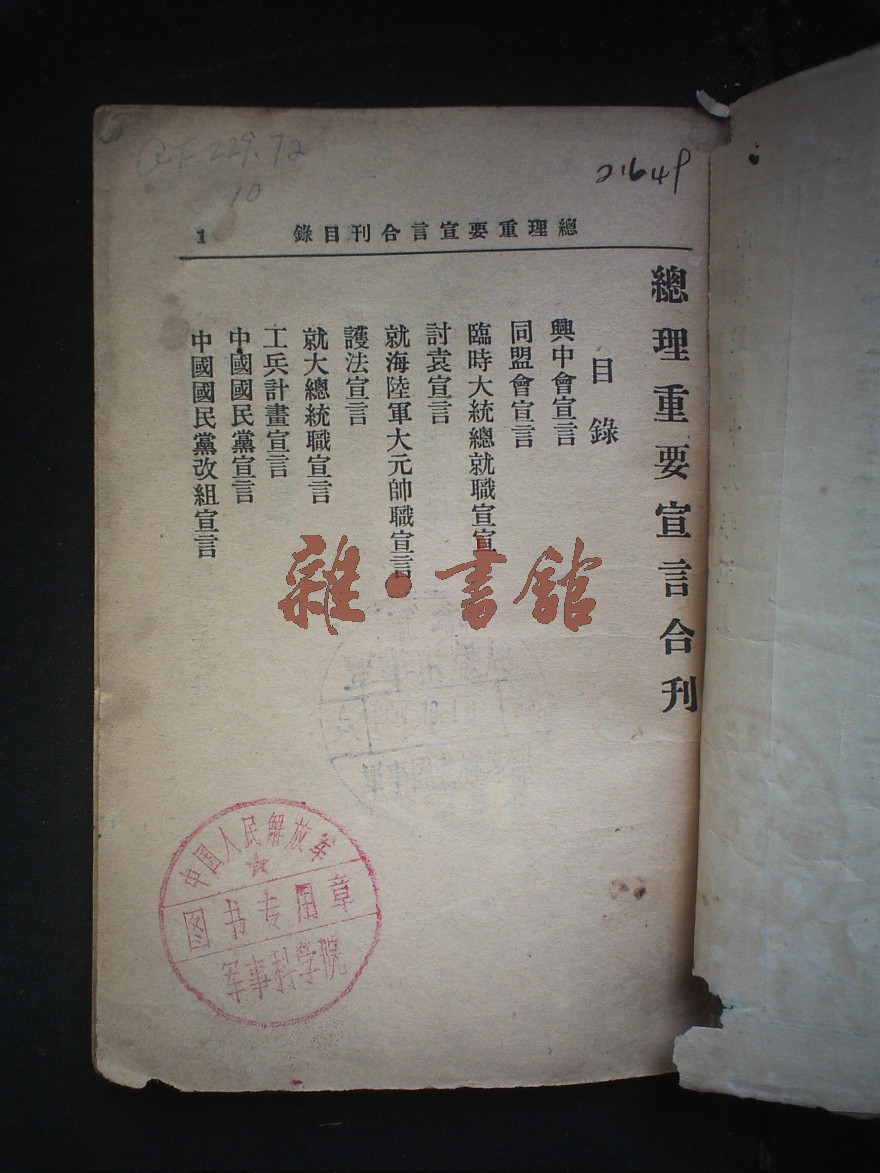 21649
總理重要宣言合刊目錄
1
總理重要宣言合刊
目錄
興中會宣言
同盟會宣言
臨時大統總就職宣宣
討袁宣言
就海陸軍大元帥職宣言
護法宣言
就大總統職宣言
工兵計畫宣言
中國國民黨宣言
中國國民黨改組宣言
雜·書館
中国人民解放军
图书专用章
军事科学院